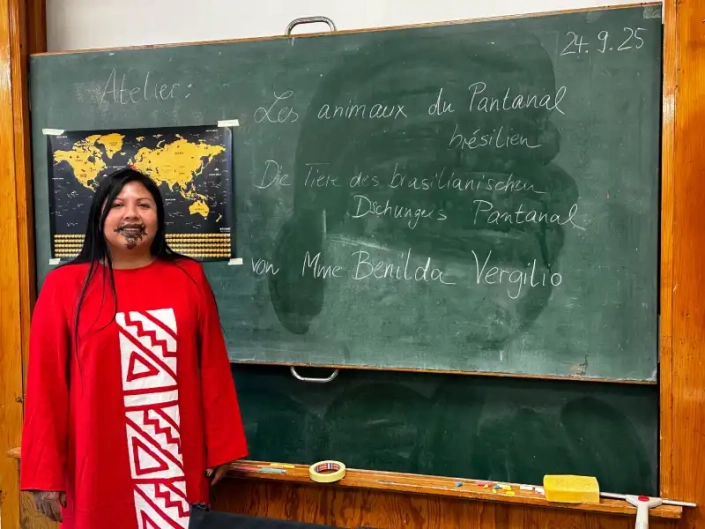 24.9.25
Atelier:
Les animaux du Pantanal
brésilien
Die Tiere des brasilianischen
Dschungels Pantanal
von Mme Benilda Vergilio